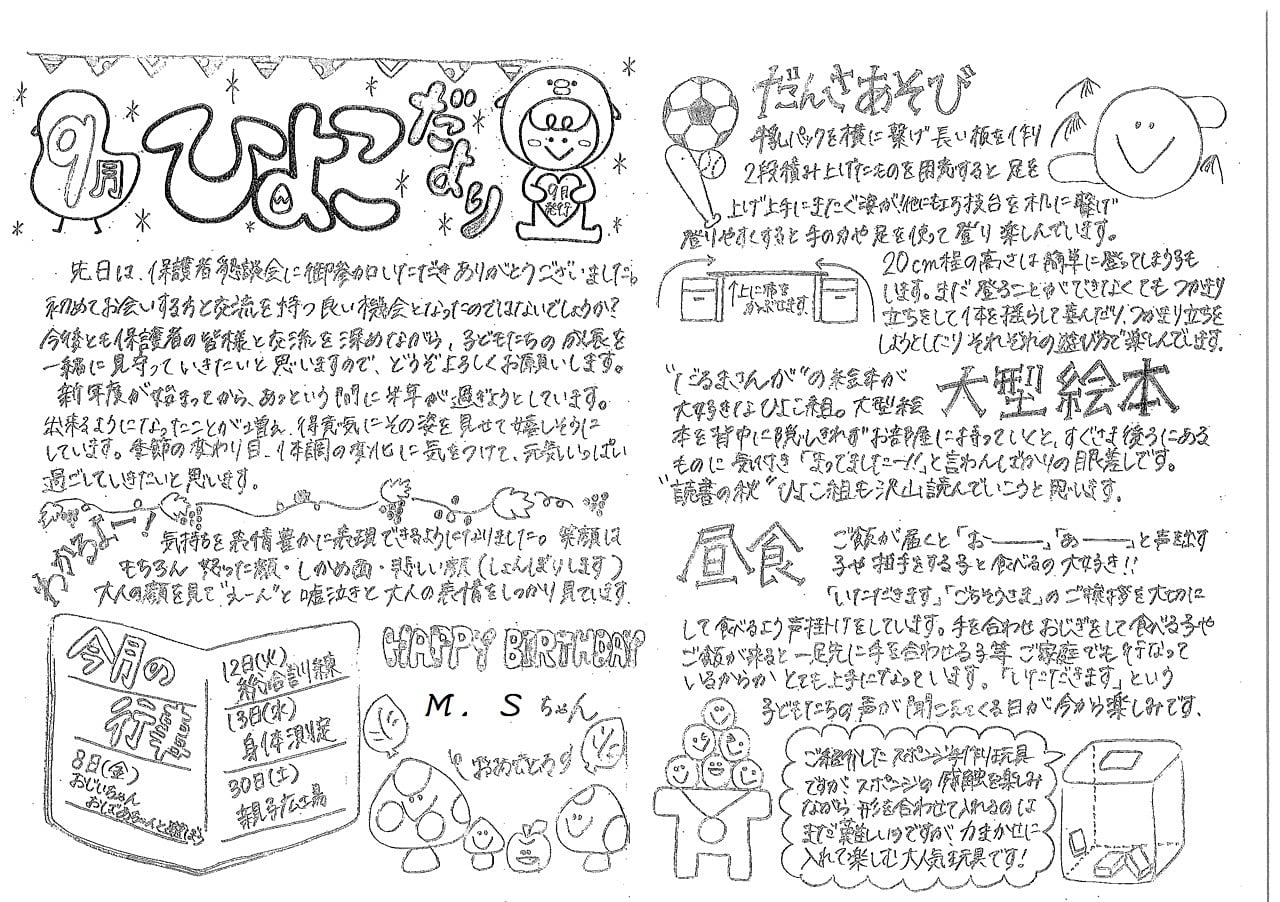 9月
ひよこ
だより
9月
発行
先日は、保護者懇談会に御参加いただきありがとうございました。
初めてお会いする方と交流を持つ良い機会となったのではないでしょうか?
今後とも保護者の皆様と交流を深めながら、子どもたちの成長を
一緒に見守っていきたいと思いますので、どうぞよろしくお願いします。
新年度が始まってから、あっという間に半年が過ぎようとしています。
出来るようになったことが増え、得意気にその姿を見せて嬉しそうに
しています。季節の変わり目、体調の変化に気をつけて、元気いっぱい
過ごしていきたいと思います。
わかるよー!
気持ちを表情豊かに表現できるようになりました。笑顔は
もちろん 怒った顔・しかめ面・悲しい顔(しょんぼりします)
大人の顔を見て"えーん"と嘘泣きと大人の表情をしっかり見ています。
今月の
行事
8日(金)
おじいちゃん
おばあちゃーんと遊ぼう
12日(火)
総合訓練
13日(水)
身体測定
30日(土)
親子広場
HAPPY BIRTHDAY
M. Sちゃん
おめでとう
だんさあそび
牛乳パックを横に繋げ長い板を作り
2段積み上げたものを用意すると足を
上げ上手にまたぐ姿が他にも巧技台をハの字に繋げ
登りやすくすると手の力や足を使って登り楽しんでいます。
↑上に布を
かぶせます。
20cm程の高さは簡単に登ってしまう子も
します。まだ登ることができなくてもつかまり
立ちをして体を揺らして喜んだり、つかまり立ちを
しようとしたりそれぞれの遊び方で楽しんでいます。
大型絵本
"だるまさんが"の絵本が
大好きなひよこ組。大型絵
本を背中に隠しきれずお部屋に持っていくと、すぐさま後ろにある
ものに気付き「まってましたー!!」と言わんばかりの眼差しです。
"読書の秋"ひよこ組も沢山読んでいこうと思います。
昼食
ご飯が届くと「おーーー」「あーーー」と声を出す
子や拍手をする子と食べるの大好き!!
「いただきます」「ごちそうさま」のご挨拶を大切に
して食べるよう声掛けをしています。手を合わせおじぎをして食べる子や
ご飯が来ると一足先に手を合わせる子等 ご家庭でも行なって
いるからか とても上手になっています。「いただきます」という
子どもたちの声が聞こえてくる日が今から楽しみです。
ご紹介したスポンジ手作り玩具
ですが スポンジの感触を楽しみ
ながら 形を合わせて入れるのは
まだ難しいのですが、力まかせに
入れて楽しむ大人気玩具です!